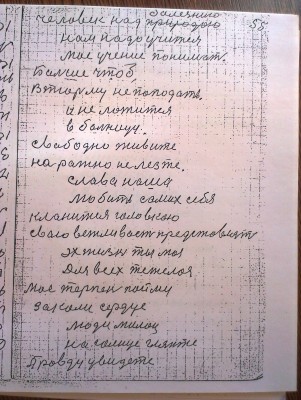 болезнию
55.
человек над природою
нам надо учится
мое учение понимать.
Болше чтоб,
В тюрму не поподать,
и не ложится
в болницу.
Свободно живите
на ражно не лезте.
слава наша
любить самих себя
кланится головою
Свою вежливость предстовлять
эх жизнь ты моя
для всех тежелоя
Мое терпен пойму
закали сердце
люди милои
на солнце гляньте
Правду увидете